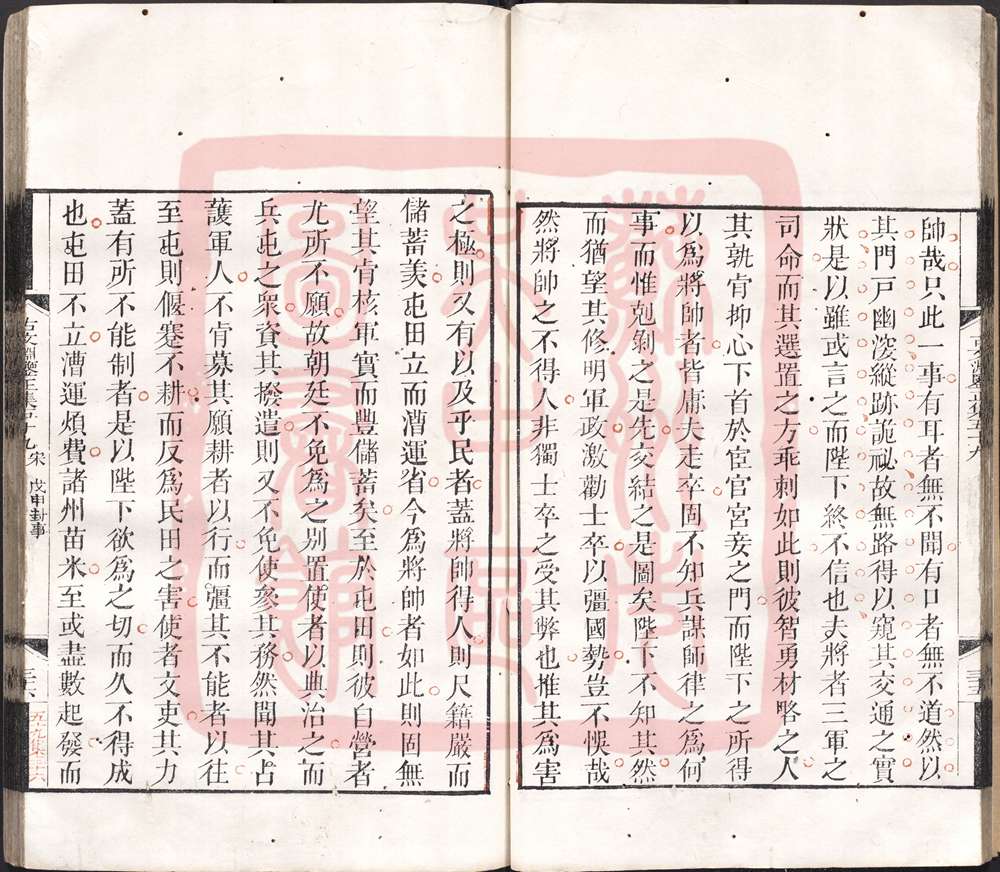 帥哉只此一事有耳者無不聞有口者無不道然以
其門戸幽深縱跡詭祕故無路得以窺其交通之實
狀是以雖或言之而陛下終不信也夫將者三軍之
司命而其選置之方乖刺如此則彼智勇材畧之人
其孰肯抑心下首於宦官宮妾之門而陛下之所得
以爲將帥者皆庸夫走卒固不知兵謀師律之爲何
事而惟剋剝之是先交結之是圖矣陛下不知其然
而猶望其修明軍政激勸士卒以彊國勢豈不悞哉
然將帥之不得人非獨士卒之受其弊也推其爲害
之極則又有以及乎民者蓋將帥得人則尺籍嚴而
儲蓄羡屯田立而漕運省今爲將帥者如此則固無
望其肯核軍實而豐儲蓄矣至於屯田則彼自營者
尤所不願故朝廷不免爲之别置使者以典治之而
兵屯之衆資其撥遣則又不免使參其務然聞其占
護軍人不肯募其願耕者以行而彊其不能者以往
至屯則偃蹇不耕而反爲民田之害使者文吏其力
蓋有所不能制者是以陛下欲爲之切而久不得成
也屯田不立漕運煩費諸州苗米至或盡數起發而
古文淵鑒正集五十九 宋 戊申封事